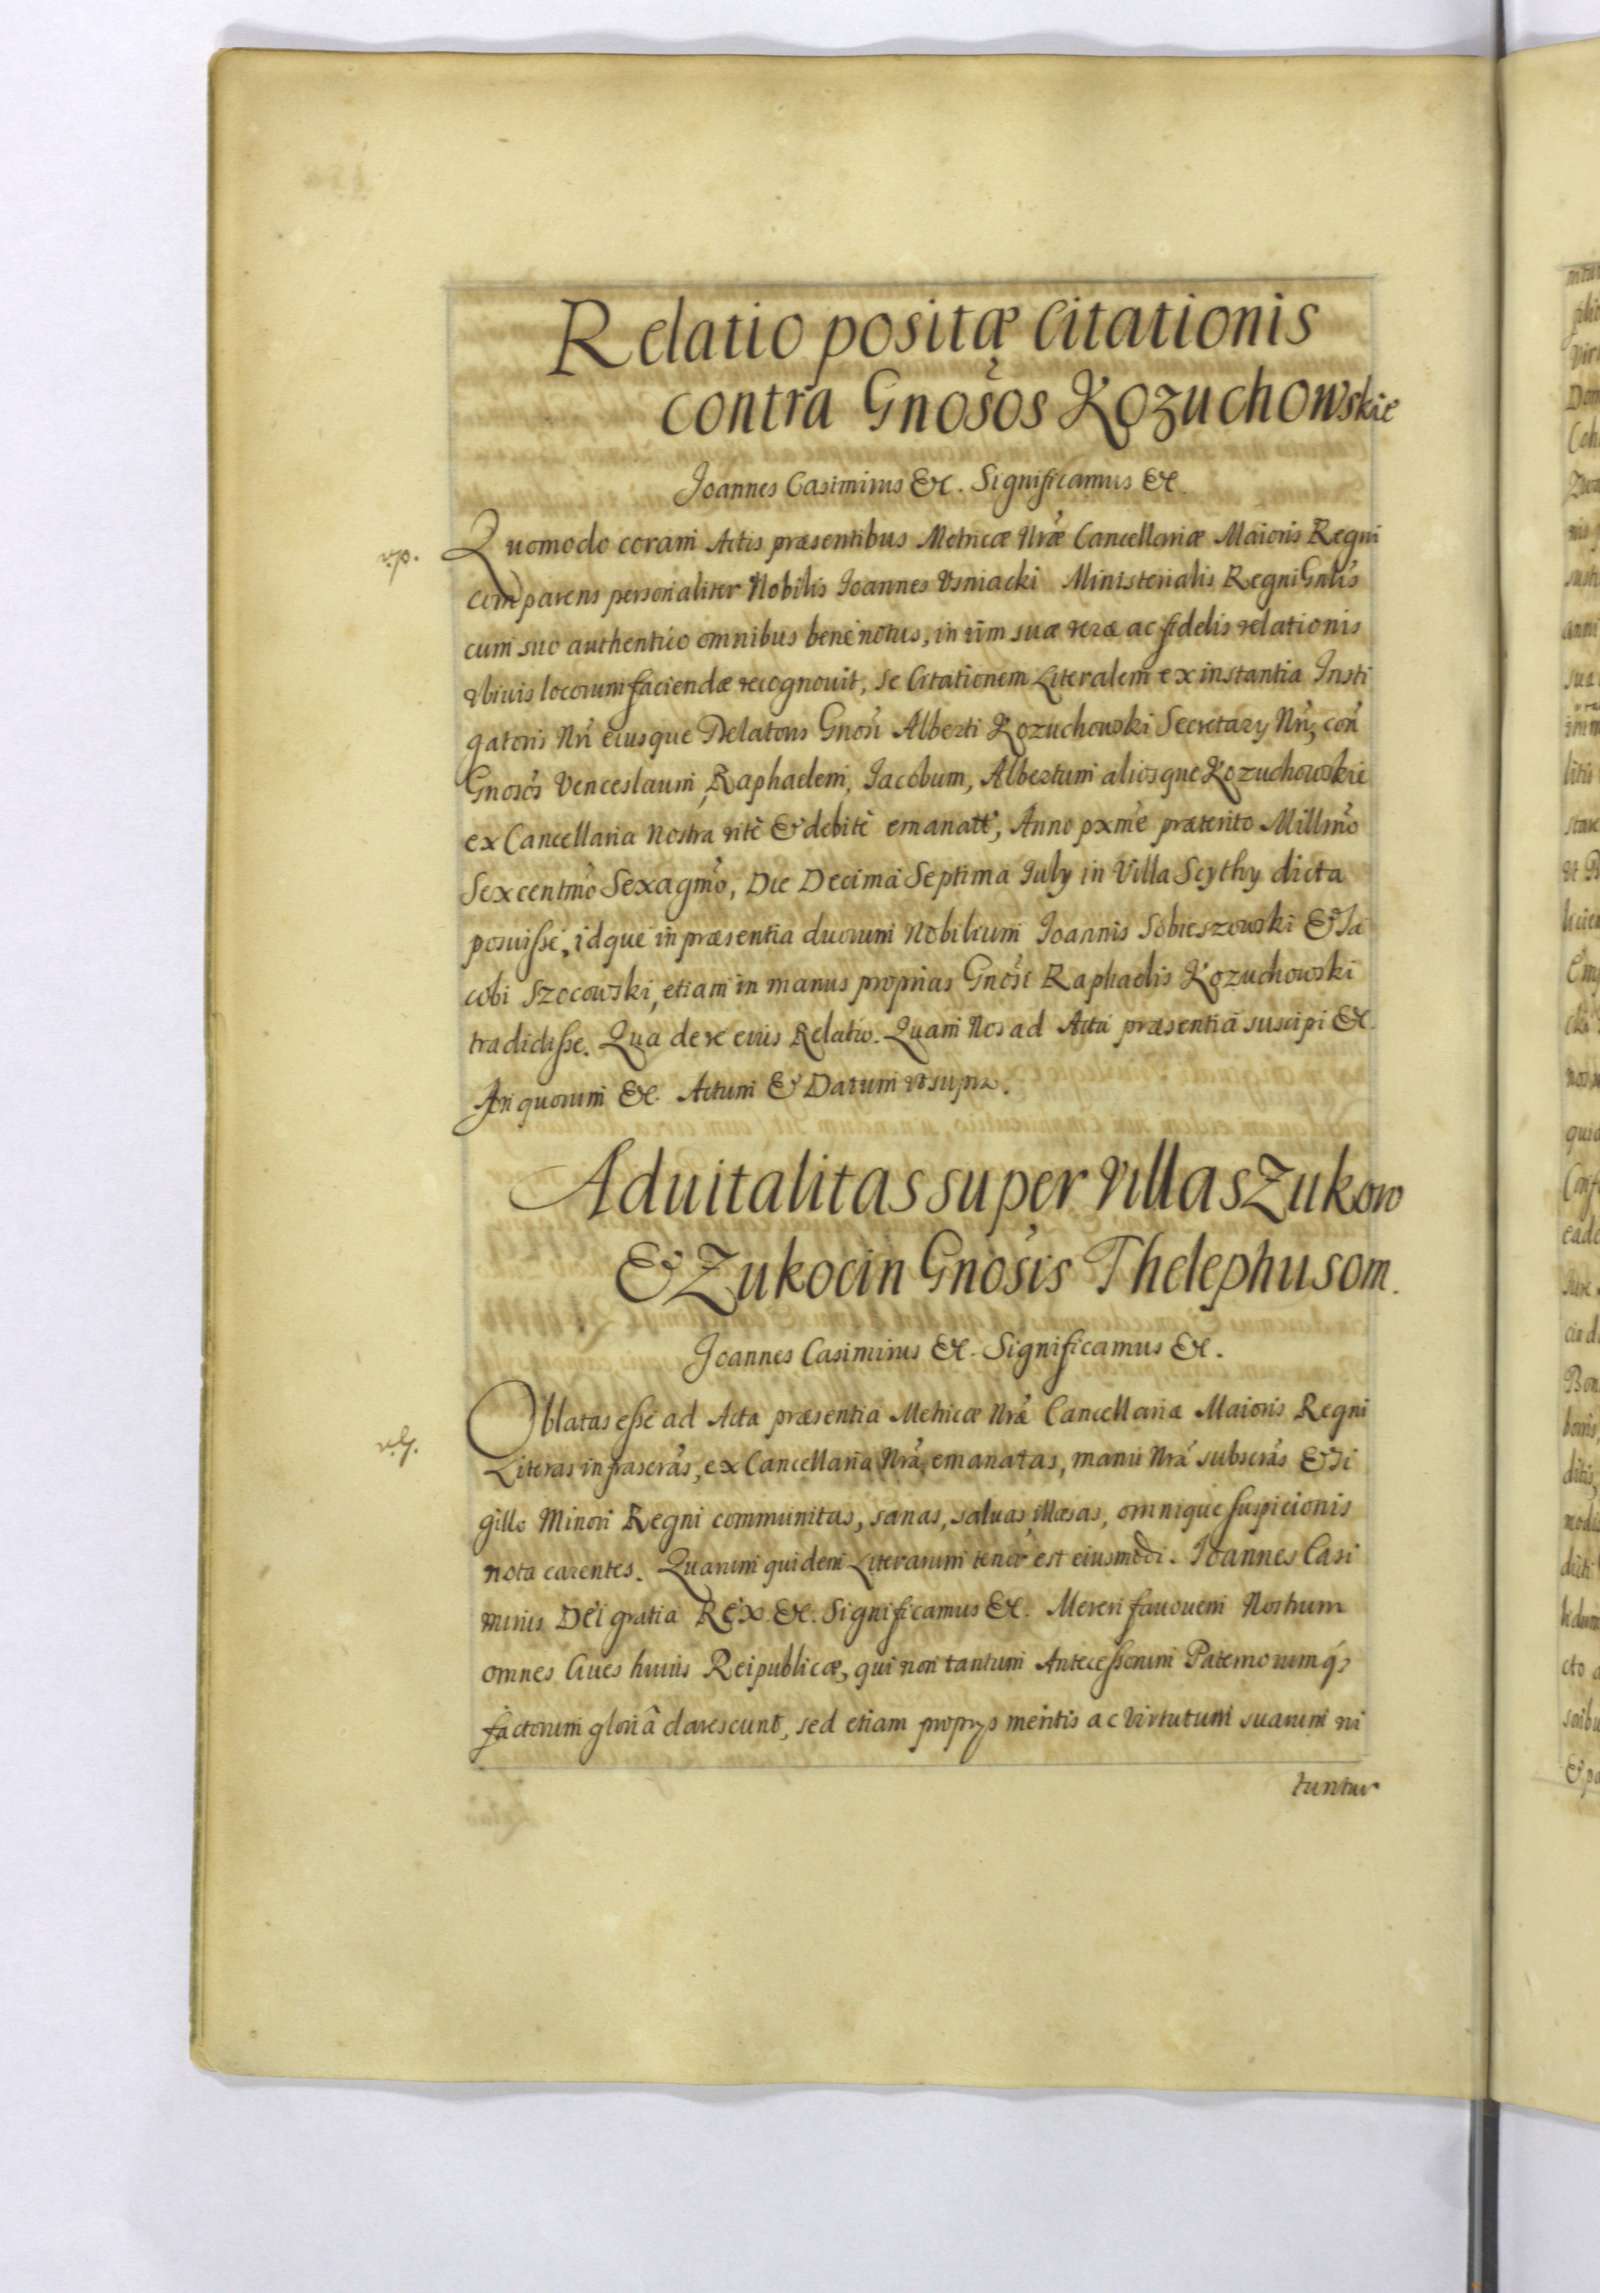 Relatio positæ Citationis
contra Gnosos Kozuchowskie
Joannes Casimirus &c. Significamus &c.
Quomodo coram Actis præsentibus Metricæ Nræ Cancellariæ Maioris Regni
comparens personaliter Nobilis Joannes Usniacki Ministerialis Regni Gnlis
cum suo authentico omnibus bene notus, in vim suæ veræ ac fidelis relationis
vbivis locorum faciendæ recognouit, se Citationem Literalem ex instantia Insti
gatoris Nri eiusque Delatoris Gnosi Alberti Kozuchowski Secretary Nri, con
Gnosos Venceslaum, Raphaelem, Jacobum, Albertum aliosque Kozuchowskie
ex Cancellaria Nostra ritè & debitè emanat, Anno pxme præterito Millmo
Sexcentmo Sexagmo, Die Decima Septima July in Villa Scythy dicta
posuisse, idque in præsentia duorum Nobilium Joannis Sobieszowski & Ja
cobi Szocowski, etiam in manus proprias Gnosi Raphaelis Kozuchowski
tradidisse. Qua de re eius Relatio. Quam Nos ad Acta præsentia suscipi &c.
In quorum &c. Actum & Datum vt supra.
Aduitalitas super Villas Zukow
& Zukocin Gnosis Thelephusom.
Joannes Casimirus &c. Significamus &c.
Oblatas esse ad Acta præsentia Metricæ Nræ Cancellariæ Maioris Regni
Literas infrascras, ex Cancellaria Nra, emanatas, manu Nra subscras & Si
gillo Minori Regni communitas, sanas, saluas, illæsas, omnique suspicionis
nota carentes. Quarum quidem Literarum tenor est eiusmodi. Joannes Casi
mirus Dei gratia Rex &c. Significamus &c. Mereri fauorem Nostrum
omnes Ciues huius Reipublicæ, qui non tantum Antecessorum Paternorumq;
factorum gloriâ clarescunt, sed etiam proprys meritis ac Virtutum suarum ni
tuntur